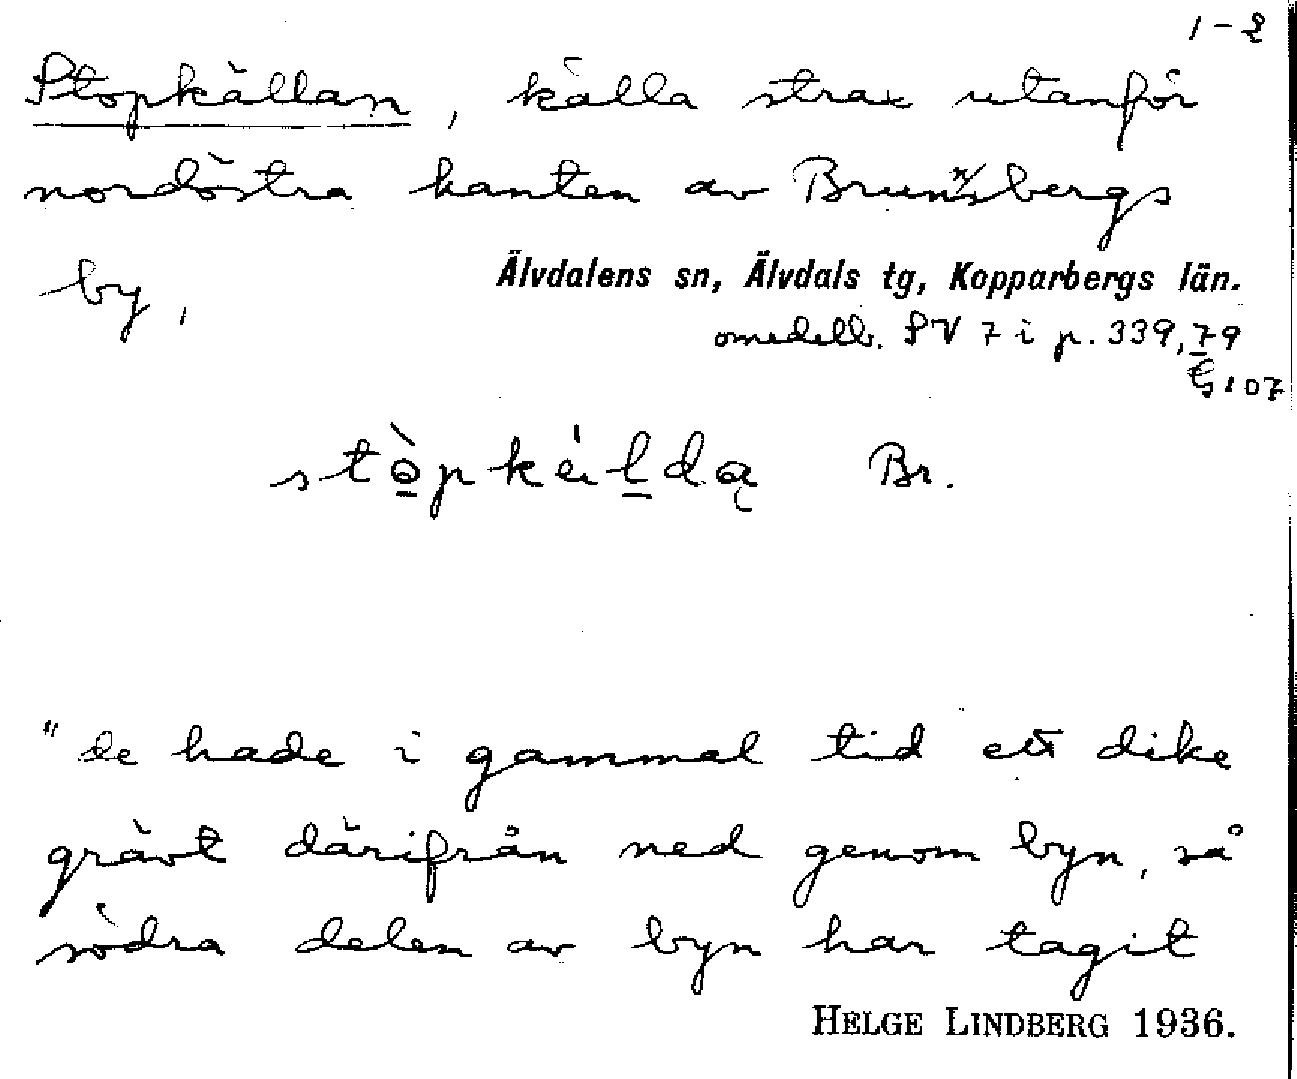 1-2
Stopkällan, källa strax utanför
nordöstra kanten av Brunnsbergs
by,
Älvdalens sn, Älvdals tg, Kopparbergs län.
omedelb. SV 7 i p. 339,79
G 107
Br.
"de hade i gammal tid ett dike
grävt därifrån ned genom byn, så
södra delen av byn har tagit
HELGE LINDBERG 1936.